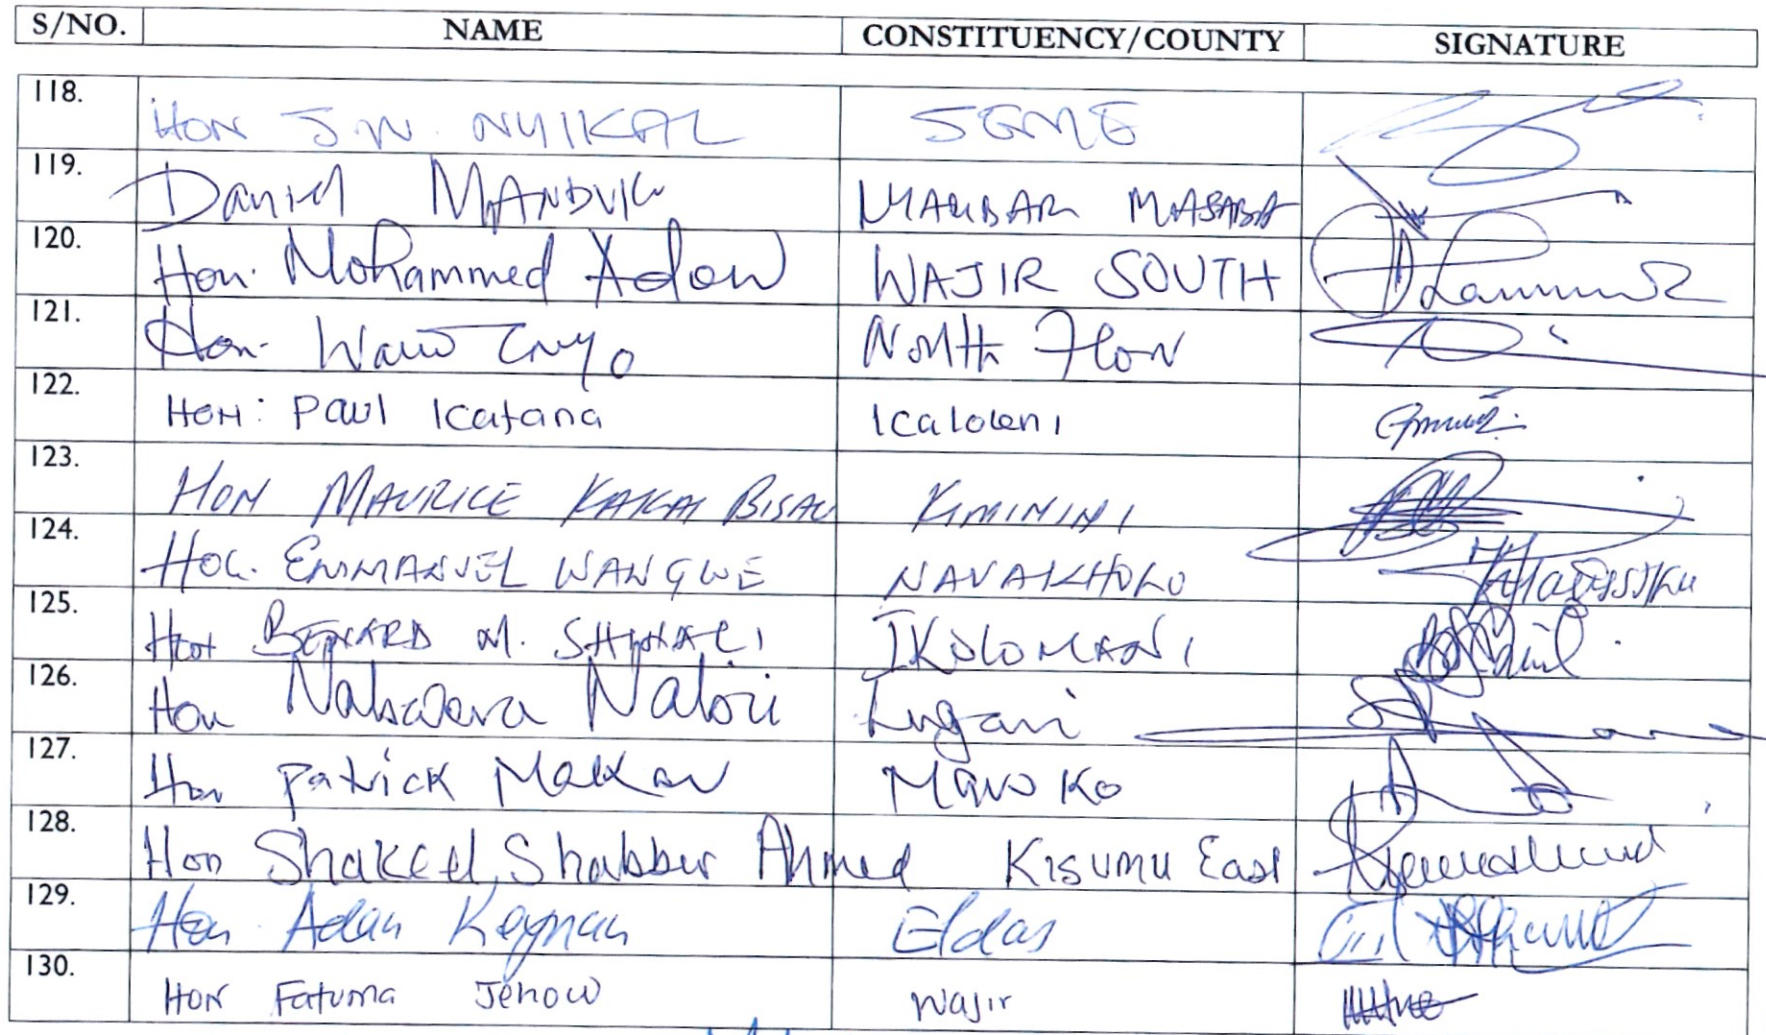 S/NO. NAME CONSTITUENCY/COUNTY SIGNATURE
118. HON J.W. NYIKAL SEME
119. Daniel MANDUKU NYARIBARI MASABA
120. Hon. Mohammed Adow WAJIR SOUTH
121. Hon. North Horr
122. HON: Paul Katana Kaloleni
123. HON MAURICE KAKAI BISAU KIMININI
124. HON. EMMANUEL WANGWE NAVAKHOLO
125. Hon BENARD M. SHINALI IKOLOMANI
126. Hon Nabwera Nabii Lugari
127. Hon Patrick Makau Mavoko
128. Hon Shakeel Shabbir Ahmed Kisumu East
129. Hon. Adan Keynan Eldas
130. HON Fatuma Jehow Wajir